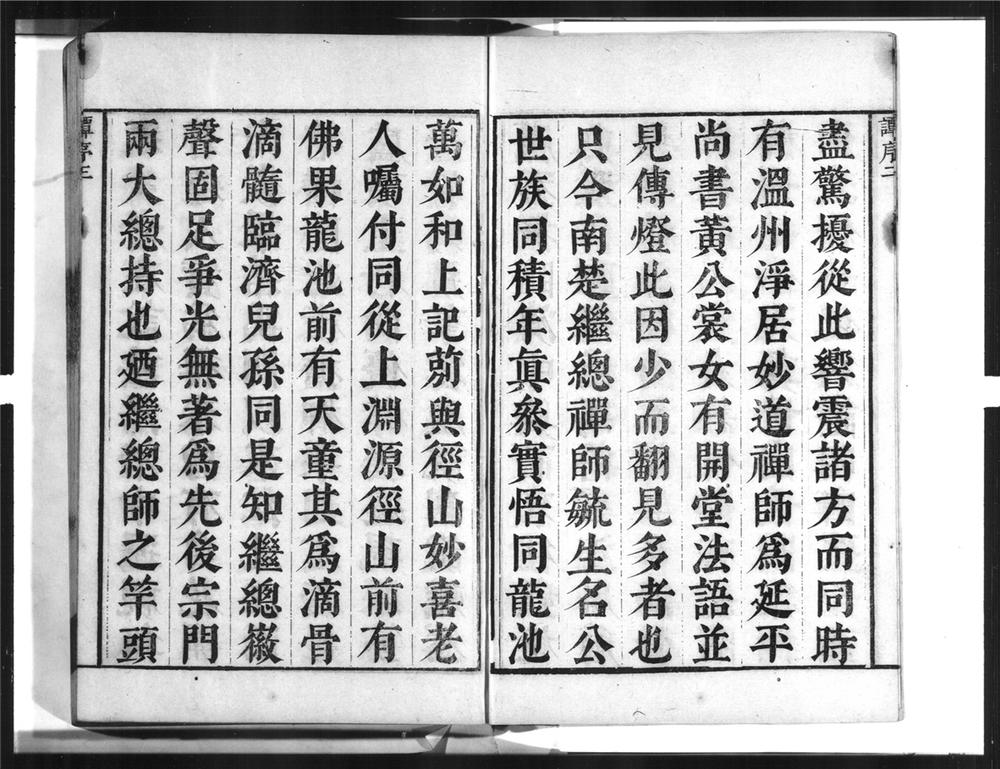 譚序二
盡驚擾從此響震諸方而同時
有溫州淨居妙道禪師爲延平
尚書黃公裳女有開堂法語並
見傳燈此因少而翻見多者也
只今南楚繼總禪師毓生名公
世族同積年眞叅實悟同龍池
萬如和上記莂與徑山妙喜老
人囑付同從上淵源徑山前有
佛果龍池前有天童其爲滴骨
滴髓臨濟兒孫同是知繼總嶶
聲固足爭光無著爲先後宗門
兩大總持也廼繼總師之竿頭
譚序三